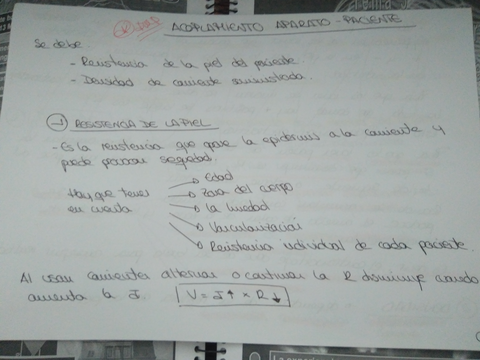 ACOPLAMIENTO APARATO - PACIENTE
Se debe
- Resistencia de la piel del paciente.
- Densidad de corriente suministrada.
-1 RESISTENCIA DE LA PIEL
- Es la resistencia que opone la epidermis a la corriente y
puede provocar sequedad.
Hay que tener
en cuenta
Edad
Zona del cuerpo
la humedad
Vascularización
Resistencia individual de cada paciente.
Al usar corrientes alternas o continuas la R disminuye cuando
aumenta la I.
V = I ↑ x R ↓